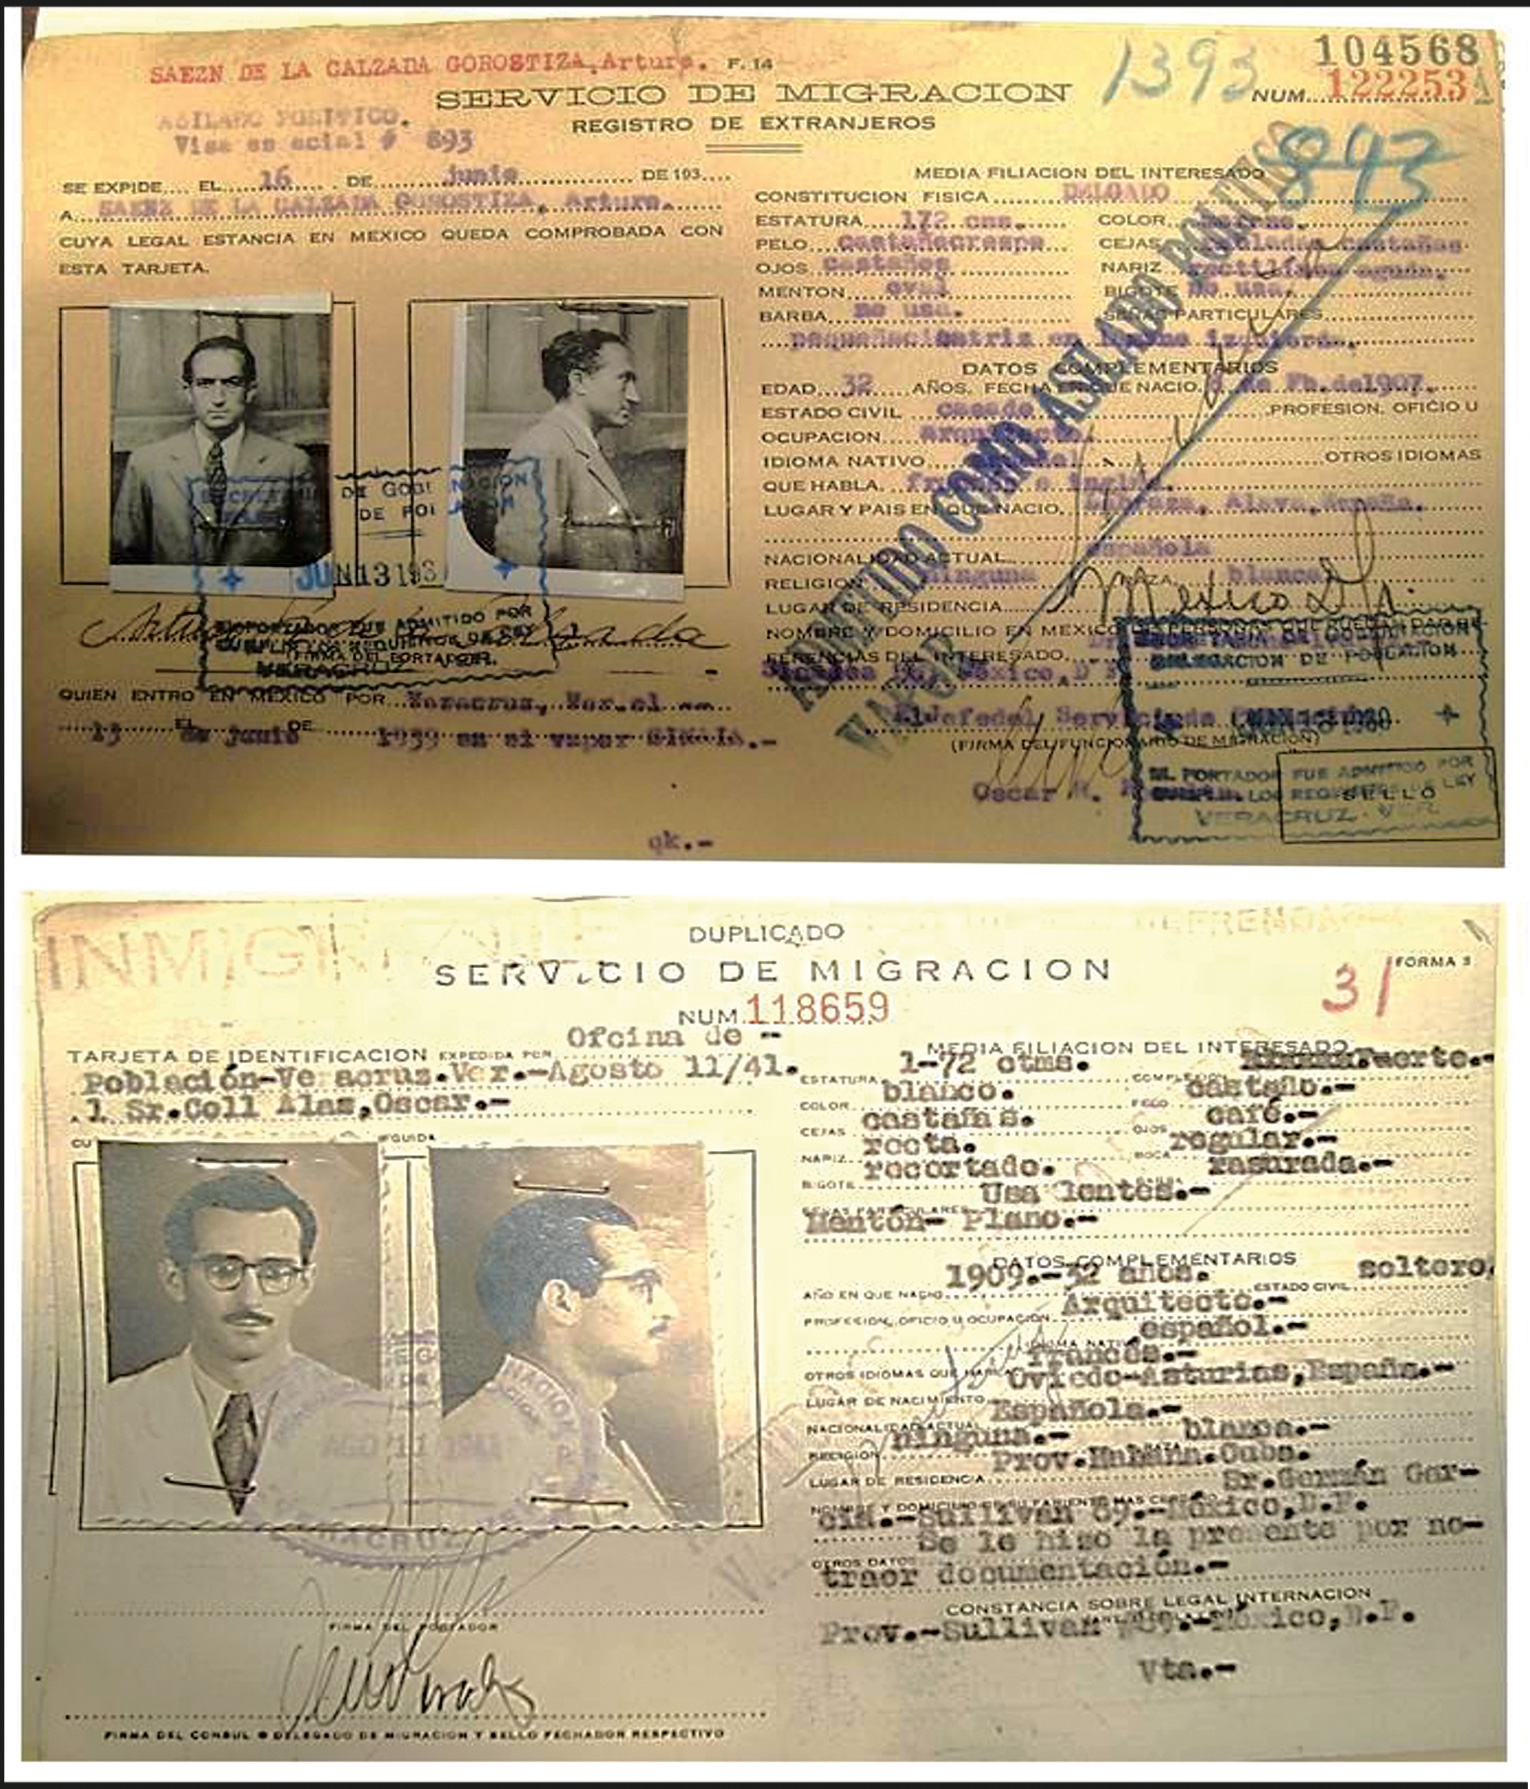 SAEZN DE LA CALZADA GOROSTIZA, Arturo. F. 14
104568
1393
NUM. 122253 A
SERVICIO DE MIGRACION
REGISTRO DE EXTRANJEROS
ASILADO POLITICO.
Visa es ecial # 893
893
SE EXPIDE.... EL 16 DE junio DE 193....
A SAENZ DE LA CALZADA GOROSTIZA, Arturo.
CUYA LEGAL ESTANCIA EN MEXICO QUEDA COMPROBADA CON
ESTA TARJETA.
SECRETARIA DE GOBERNACION
DE POBLACION
JUN 13 193
EL PORTADOR FUE ADMITIDO POR
CUMPLIR LOS REQUISITOS DE LEY
(FIRMA DEL PORTADOR)
VERACRUZ
QUIEN ENTRO EN MEXICO POR Veracruz, Ver. el
13 EL de junio DE 1939 en el vapor SINAIA.-
MEDIA FILIACION DEL INTERESADO
CONSTITUCION FISICA DELGADO
ESTATURA 172 cms. COLOR moreno.
PELO castañocrespo CEJAS pobladas castañas
OJOS castaños NARIZ rectilínea aguda.
MENTON oval BIGOTE No usa.
BARBA no usa. SEÑAS PARTICULARES
pequeñacicatriz en izquierda.
DATOS COMPLEMENTARIOS
EDAD 32 AÑOS, FECHA EN QUE NACIO. de Fb.de1907.
ESTADO CIVIL casado PROFESION, OFICIO U
OCUPACION Arquitecto.
IDIOMA NATIVO español OTROS IDIOMAS
QUE HABLA. francés e inglés.
LUGAR Y PAIS EN QUE NACIO. Alava, España.
NACIONALIDAD ACTUAL española
RELIGION ninguna RAZA blanca
LUGAR DE RESIDENCIA Mexico D.F.
NOMBRE Y DOMICILIO EN MEXICO DE PERSONAS QUE PUEDAN DAR RE-
FERENCIAS DEL INTERESADO
México, D F
ADMITIDO COMO ASILADO POLITICO
El Jefe del Servicio de Migración.
(FIRMA DEL FUNCIONARIO DE MIGRACION)
Oscar R.
SECRETARIA DE GOBERNACION
DELEGACION DE POBLACION
EL PORTADOR FUE ADMITIDO POR
CUMPLIR LOS REQUISITOS DE LEY
SELLO
VERACRUZ - VER
qk.-
DUPLICADO
SERVICIO DE MIGRACION
FORMA 3
31
NUM. 118659
TARJETA DE IDENTIFICACION EXPEDIDA POR Oficina de -
Población-Veracruz.Ver.-Agosto 11/41.
A l Sr.Coll Alas,Oscar.-
AGO 11 1941
VERACRUZ
FIRMA DEL PORTADOR
FIRMA DEL CONSUL O DELEGADO DE MIGRACION Y SELLO FECHADOR RESPECTIVO
MEDIA FILIACION DEL INTERESADO
ESTATURA 1-72 ctms. COMPLEXION Fuerte.-
COLOR blanco. PELO castaño.-
CEJAS castañas. OJOS café.-
NARIZ recta. BOCA regular.-
BIGOTE recortado. rasurada.-
SEÑAS PARTICULARES Usa lentes.-
Mentón- Plano.-
DATOS COMPLEMENTARIOS
AÑO EN QUE NACIO 1909.-32 años. ESTADO CIVIL soltero,
PROFESION, OFICIO U OCUPACION Arquitecto.-
IDIOMA NATIVO español.-
OTROS IDIOMAS QUE HABLA francés.-
LUGAR DE NACIMIENTO Oviedo-Asturias,España.-
NACIONALIDAD ACTUAL Española.-
RELIGION ninguna.- blanca.-
LUGAR DE RESIDENCIA Prov.Habana.Cuba.
NOMBRE Y DOMICILIO DE SU PARIENTE MAS CERCANO Sr.Germán Gar-
cía.-Sullivan 69.-México,D.F.
OTROS DATOS Se le hizo la presente por no-
traer documentación.-
CONSTANCIA SOBRE LEGAL INTERNACION
Prov.-Sullivan #69.-México,D.F.
Vta.-